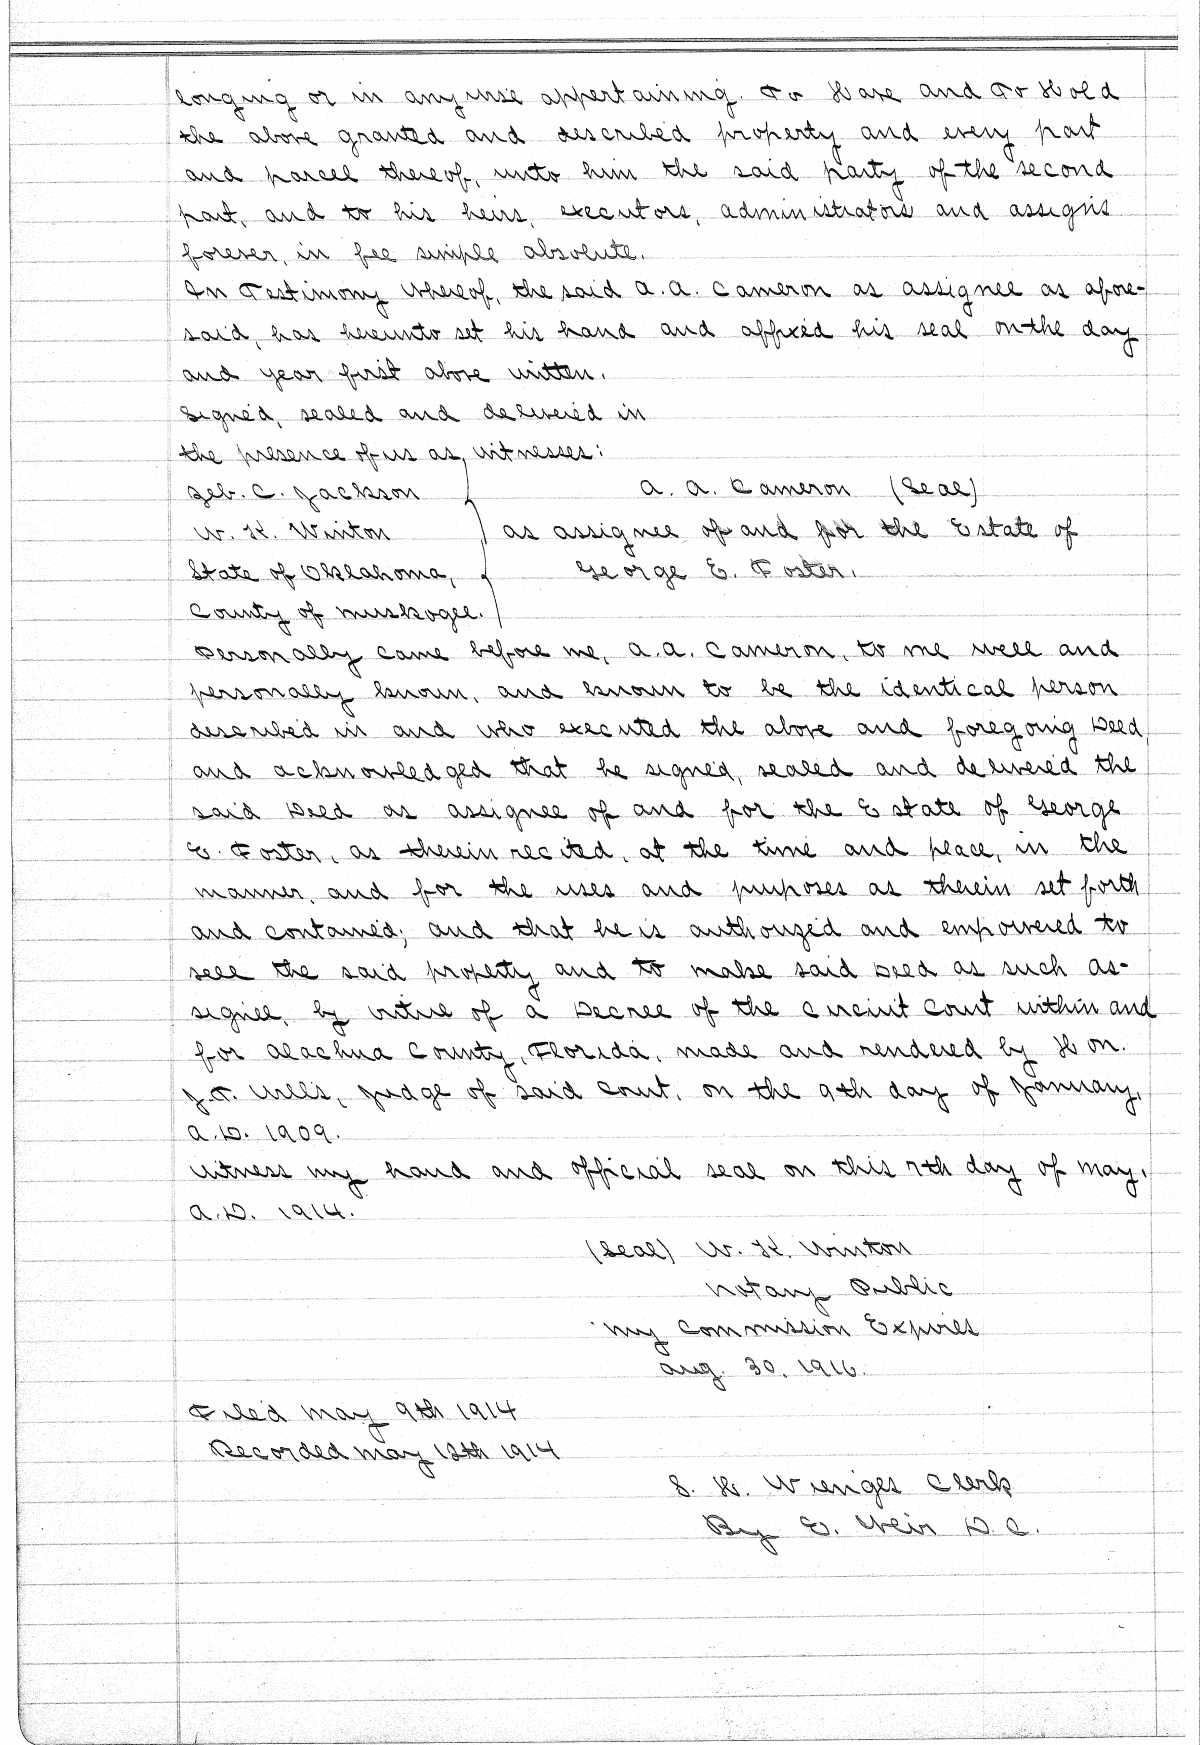 longing or in anywise appertaining. To Have and To Hold
the above granted and described property and every part
and parcel thereof, unto him the said party of the second
part, and to his heirs, executors, administrators and assigns
forever, in fee simple absolute.
In Testimony Whereof, the said A.A. Cameron as assignee as afore-
said, has hereunto set his hand and affixed his seal on the day
and year first above written.
Signed, sealed and delivered in
the presence of us as witnesses:
Geb. C. Jackson A. A. Cameron (Seal)
W. H. Winton as assignee of and for the Estate of
State of Oklahoma, George E. Foster.
County of Muskogee.
Personally came before me, A.A. Cameron, to me well and
personally known, and known to be the identical person
described in and who executed the above and foregoing Deed,
and acknowledged that he signed, sealed and delivered the
said Deed as assignee of and for the Estate of George
E. Foster, as therein recited, at the time and place, in the
manner, and for the uses and purposes as therein set forth
and contained; and that he is authorized and empowered to
sell the said property and to make said Deed as such as-
signee, by virtue of a Decree of the Circuit Court within and
for Alachua County, Florida, made and rendered by Hon.
J.T. Wills, Judge of said Court, on the 9th day of January,
A.D. 1909.
Witness my hand and official seal on this 7th day of May,
A.D. 1914.
(Seal) W. H. Winton
Notary Public
My Commission Expires
Aug. 30, 1916.
Filed May 9th 1914
Recorded May 12th 1914
S. H. Wienges Clerk
By E. Weir D.C.